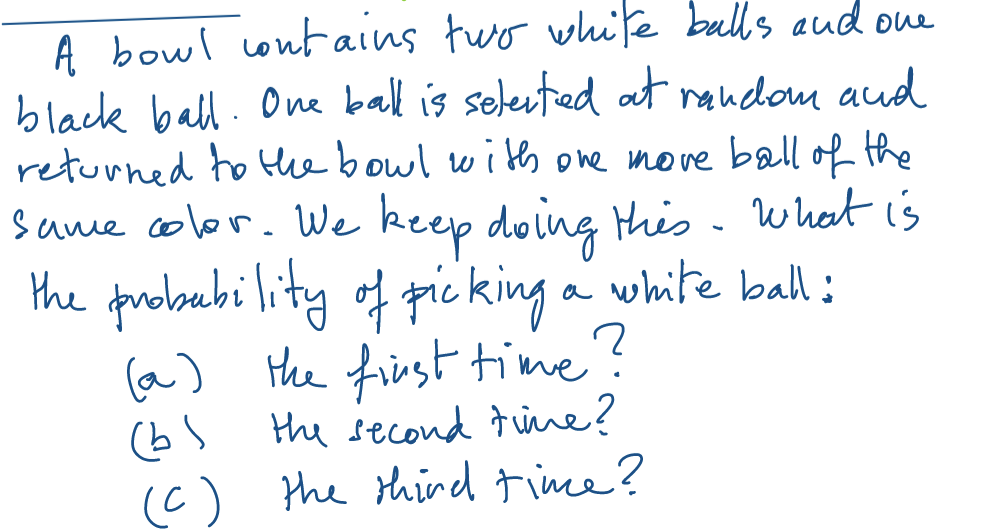 A bowl contains two white balls and one
black ball. One ball is selected at random and
returned to the bowl with one more ball of the
same color. We keep doing this. What is
the probability of picking a white ball:
(a) the first time?
(b) the second time?
(c) the third time?